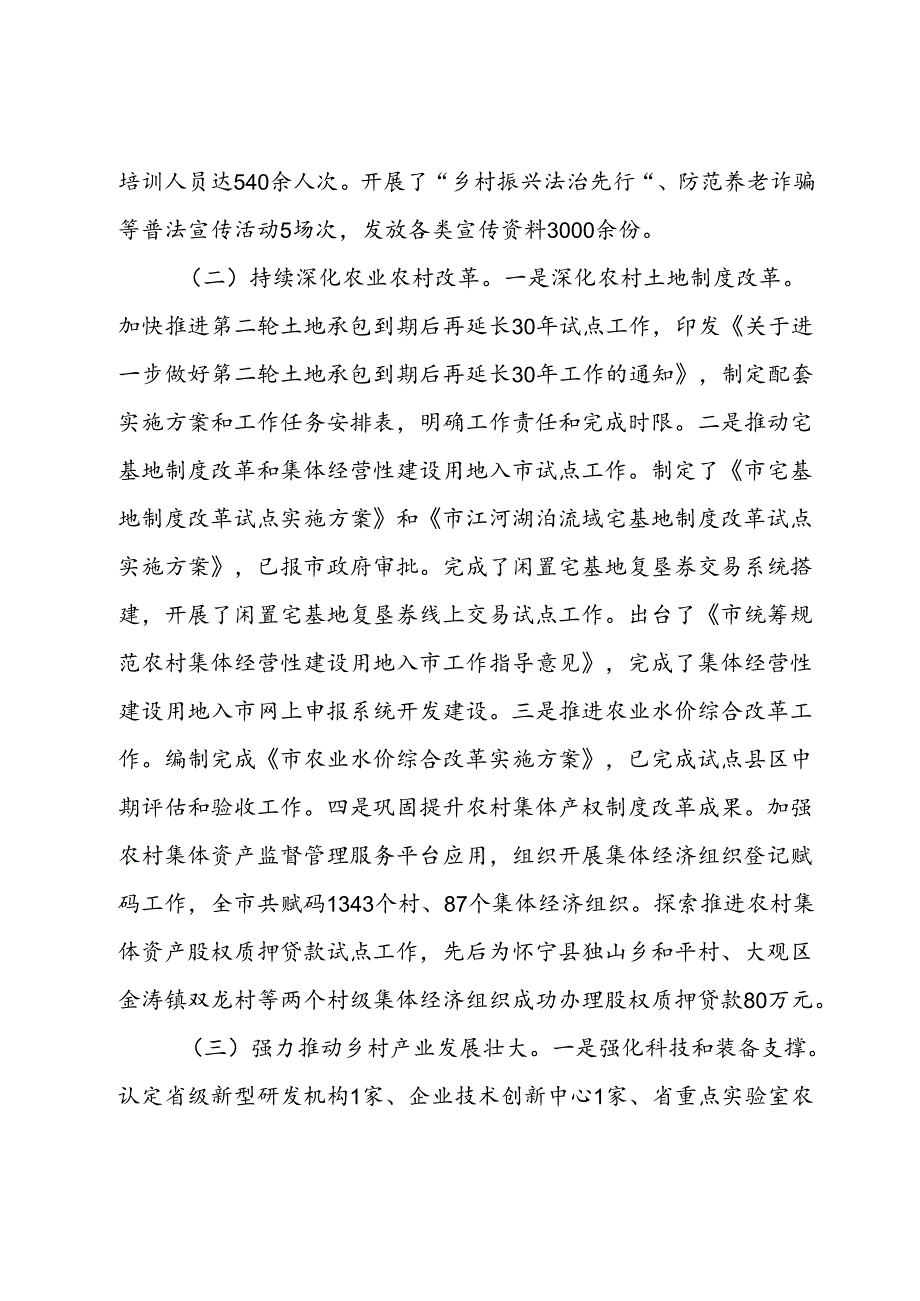 培训人员达540余人次。开展了“乡村振兴法治先行“、防范养老诈骗
等普法宣传活动5场次，发放各类宣传资料3000余份。
（二）持续深化农业农村改革。一是深化农村土地制度改革。
加快推进第二轮土地承包到期后再延长30年试点工作，印发《关于进
一步做好第二轮土地承包到期后再延长30年工作的通知》，制定配套
实施方案和工作任务安排表，明确工作责任和完成时限。二是推动宅
基地制度改革和集体经营性建设用地入市试点工作。制定了《市宅基
地制度改革试点实施方案》和《市江河湖泊流域宅基地制度改革试点
实施方案》，已报市政府审批。完成了闲置宅基地复垦券交易系统搭
建，开展了闲置宅基地复垦券线上交易试点工作。出台了《市统筹规
范农村集体经营性建设用地入市工作指导意见》，完成了集体经营性
建设用地入市网上申报系统开发建设。三是推进农业水价综合改革工
作。编制完成《市农业水价综合改革实施方案》，已完成试点县区中
期评估和验收工作。四是巩固提升农村集体产权制度改革成果。加强
农村集体资产监督管理服务平台应用，组织开展集体经济组织登记赋
码工作，全市共赋码1343个村、87个集体经济组织。探索推进农村集
体资产股权质押贷款试点工作，先后为怀宁县独山乡和平村、大观区
金涛镇双龙村等两个村级集体经济组织成功办理股权质押贷款80万元。
（三）强力推动乡村产业发展壮大。一是强化科技和装备支撑。
认定省级新型研发机构1家、企业技术创新中心1家、省重点实验室农